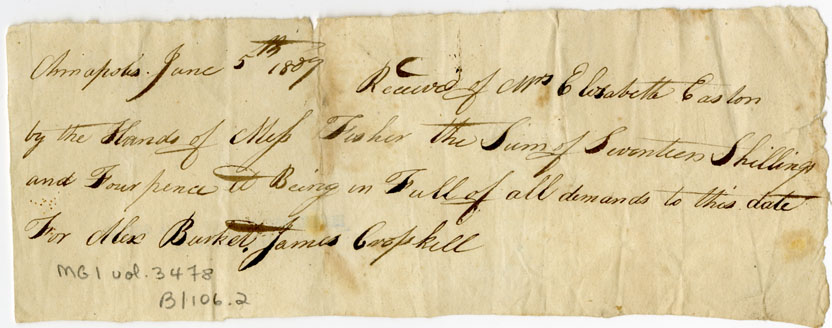 Annapolis. June 5th 1809
Received of Mrs Elisabeth Easton
by the Hands of Miss Fisher the Sum of Seventeen Shillings
and Four pence it Being in Full of all demands to this date
For Alex Burket. James Crosskill
MG1 vol. 3478
B/106.2